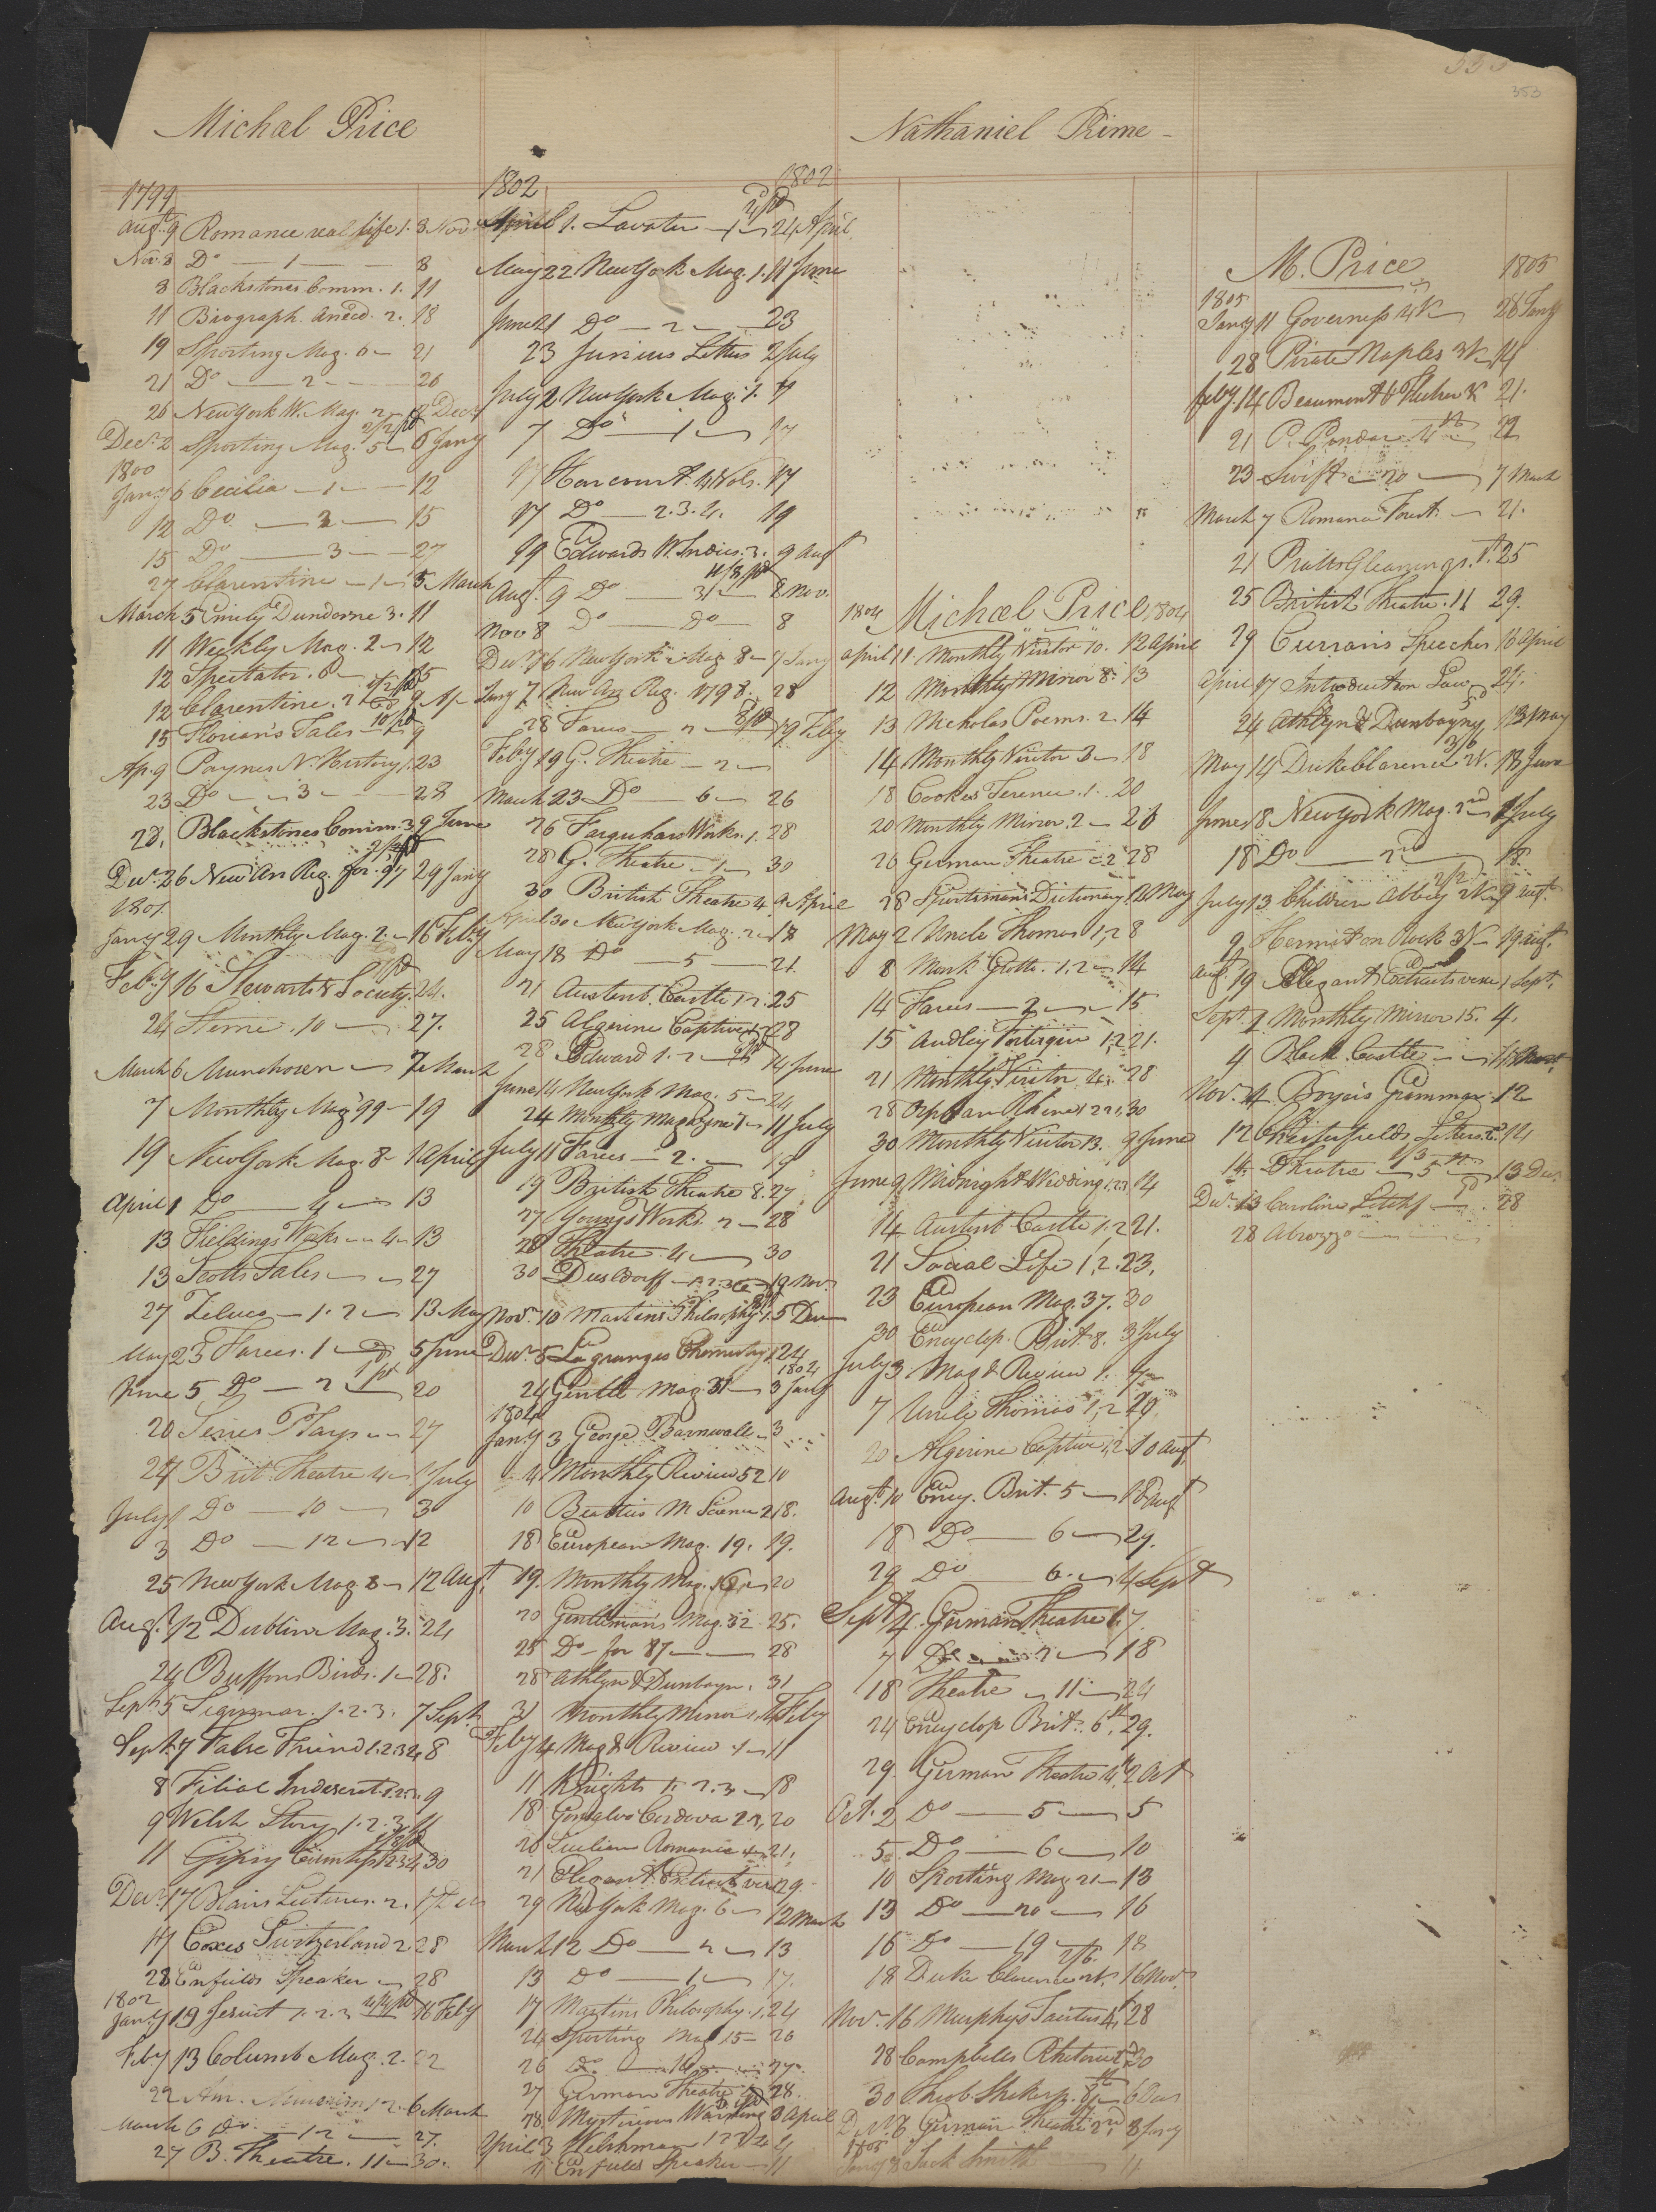 353
Michael Price
1799
Augt 9 Romance real life 1. 3 Nov
Nov. 3 Do — 1 — 8
8 Blackstones Comm. 1. 11
11 Biograph. Anecd. 2. 18
19 Sporting Mag. 6 — 21
21 Do — 2 — 26
26 New York W. Mag. 2 — 2 Decr
Decr 2 Sporting Mag. 5 — 6 Jany
1800
Jany 6 Cecilia — 1 — 12
12 Do — 2 — 15
15 Do — 3 — 27
27 Clarentine — 1 — 5 March
March 5 Emily Dundorne 3. 11
11 Weekly Mag. 2 — 12
12 Spectator. 8 — 15
12 Clarentine. 2 9 Ap
15 Florian's Tales — 9
Ap. 9 Paynes N. History 1. 23
23 Do — 3 — 28
28. Blackstones Comm. 3. 9 June
Decr 26 New An Reg. for 97 29 Jany
1801
Jany 29 Monthly Mag. 2 — 16 Feby
Feby 16 Stewarts Society. 24.
24 Sterne. 10 — 27.
March 6 Munchosen — 7 March
7 Monthly Mag 99 — 19
19 New York Mag. 8 — 1 April
April 1 Do — 4 — 13
13 Fieldings Works — 4 — 13
13 Scotts Tales — 27
27 Zeluco — 1. 2 — 13 May
May 23 Farces. 1 — 5 June
June 5 Do — 2 — 20
20 Series Plays — 27
27 Brit. Theatre 4 — 1 July
July 1 Do — 10 — 3
3 Do — 12 — 12
25 New York Mag 8 — 12 Augt
Augt 12 Dublin Mag. 3. 24
24 Buffons Birds. 1 — 28.
Sept 5 Sigismar. 1. 2. 3. 7 Sept
Sept 7 False Friend 1. 2. 3. 4 8
8 Filial Indiscret. 1. 2. 3. 9
9 Welsh Story 1. 2. 3. 11
11 Gipsy Countess 1 2 3 4 30
Decr 17 Blairs Lectures. 2. 17 Decr
17 Coxes Switzerland 2 28
28 Enfields Speaker — 28
1802
Jany 19 Jesuit 1. 2. 3 16 Feby
Feby 13 Columb. Mag. 2. 22
22 Am. Museum 1 2 6 March
March 6 Do — 12 — 27.
27 B. Theatre. 11 — 30.
1802 1802
April 1. Lavater — 1 — 24 April
May 22 New York Mag. 1. 11 June
June 21 Do — 2 — 23
23 Junius Letters 2 July
July 2 New York Mag. 1. 7
7 Do — 1 — 17
17 Harcourt. 4 Vols. 17
17 Do — 2. 3. 4. 19
19 Edwards W. Indies. 3. 9 Augt
Augt 9 Do — 3 — 8 Nov.
Nov 8 Do — Do — 8
Decr 16 New York Mag 8 — 7 Jany
Jany 7. New An Reg. 1798. 28
28 Farces — 2 — 19 Feby
Feby 19 G. Theatre — 2 —
March 23 Do — 6 — 26
26 Farquhars Works. 1. 28
28 G. Theatre — 1 — 30
30 British Theatre 4. 9 April
April 30 New York Mag. 2 — 18
May 18 Do — 5 — 21.
21 Austenb. Castle 1. 2. 25
25 Algerine Captive 28
28 Edward 1. 2 — 14 June
June 14 New York Mag. 5 — 24
24 Monthly Magazine 7 — 11 July
July 11 Farces — 2. — 19
19 British Theatre 8. 27
27 Youngs Works. 2 — 28
28 Theatre. 4 — 30
30 Dusldorff — 1. 2. 3 — 19 Nov.
Novr 10 Martins Philosophy 1. 5 Decr
Decr 5 Lagranges Chemistry 1. 24
1804
24 Gentle Mag 31 — 3 Jany
1804
Jany 3 George Barnwall — 3
4 Monthly Review 52 10
10 Beatties M Science 2 18.
18 European Mag. 19. 19.
19. Monthly Mag. 16 — 20
20 Gentlemans Mag. 32 25.
25 Do for 87 — 28
28 Athlyn & Dunbayn. 31
31 Monthly Mirror 1. 4 Feby
Feby 4 Mag & Review 1 — 11
11 Knights 1. 2. 3 — 18
18 Gonsalvo Cordova 2. 3. 20
20 Sicilian Romance 21.
21 Elegant Extracts verse 29.
29 N York Mag. 6 — 12 March
March 12 Do — 2 — 13
13 Do — 1 — 17.
17 Martins Philosophy. 1. 24
24 Sporting Mag 15 — 26
26 Do — 27.
27 German Theatre 28.
28. Mysterious Warning 3 April
April 3 Welshman 1 2 3 4 4
4 Enfields Speaker — 11
Nathaniel Prime —
1804 Michael Price 1804
April 11 Monthly Visitor 10. 12 April
12 Monthly Mirror 8. 13
13 Nicholas Poems. 2. 14
14 Monthly Visitor 3 — 18
18 Cookes Terence. 1. 20
20 Monthly Mirror. 2 — 26
26 German Theatre — 2 28
28 Sportsman's Dictionary 1. 2 May
May 2 Uncle Thomas 1, 2 8
8 Monk Grotto. 1, 2 — 14
14 Farces — 2 — 15
15 Audley Fortescue 1, 2 21.
21 Monthly Visitor 4. 28
28 Orphan Rhine 1 2 3. 30
30 Monthly Visitor 13. 9 June
June 9 Midnight Wedding 1, 2, 3 14
14 Austenb Castle 1. 2 21.
21 Social Life 1, 2. 23.
23 European Mag. 37. 30
30 Encyclop. Brit. 8. 3 July
July 3 Mag & Review 1. 7
7 Uncle Thomas 1, 2 20
20 Algerine Captive 1, 2 10 Augt
Augt 10 Ency. Brit. 5 — 18 Augt
18 Do — 6 — 29.
29 Do — 6. — 4 Sept
Sept 4. German Theatre 1. 7.
7 Do — 2 — 18
18 Theatre — 11 — 24
24 Encyclop Brit. 6th 29.
29. German Theatre 4. 2 Oct
Oct. 2 Do — 5 — 5
5. Do — 6 — 10
10 Sporting Mag 21 — 13
13 Do — 20 — 16
16 Do — 19 — 18
18 Duke Clarence 16 Nov.
Novr 16 Murphys Tacitus 4. 28
28 Campbells Rhetoric 30
30 Theob. Shaksp. 8th 6 Decr
Decr 6 German Theatre 2nd 8 Jany
1805
Jany 8 Jack Smith 11
M. Price 1805
1805
Jany 11 Governess 4 V 28 Jany
28 Pirate Naples 3 V 14
Feby. 14 Beaumont & Fletcher 21.
21 P. Pindar. 4th 22
23 Swift — 20 — 7 March
March 7 Romance Forest. — 21.
21 Pratts Gleanings. 1. 25
25 British Theatre. 11 29.
29 Curran's Speeches 16 April
April 17 Introduction Law 24.
24 Athlyn & Dunbayny 13 May
May 14 Duke Clarence 2 V. 18 June
June 18 New York Mag. 2nd July
18 Do — 2nd — 18
July 13 Children Abbey 9 Augt
9 Hermit on Rock 3 V — 19 Augt.
Augt. 19 Elegant Extracts verse 1 Sept.
Sept. 1 Monthly Mirror 15. 4.
4 Black Castle —
Nov. 4 Boyers Grammar. 12
12 Chesterfields Letters. 2. 14
14. Theatre — 5 — 13 Decr
Decr 13 Caroline Litchf — 28
28 Abozzo